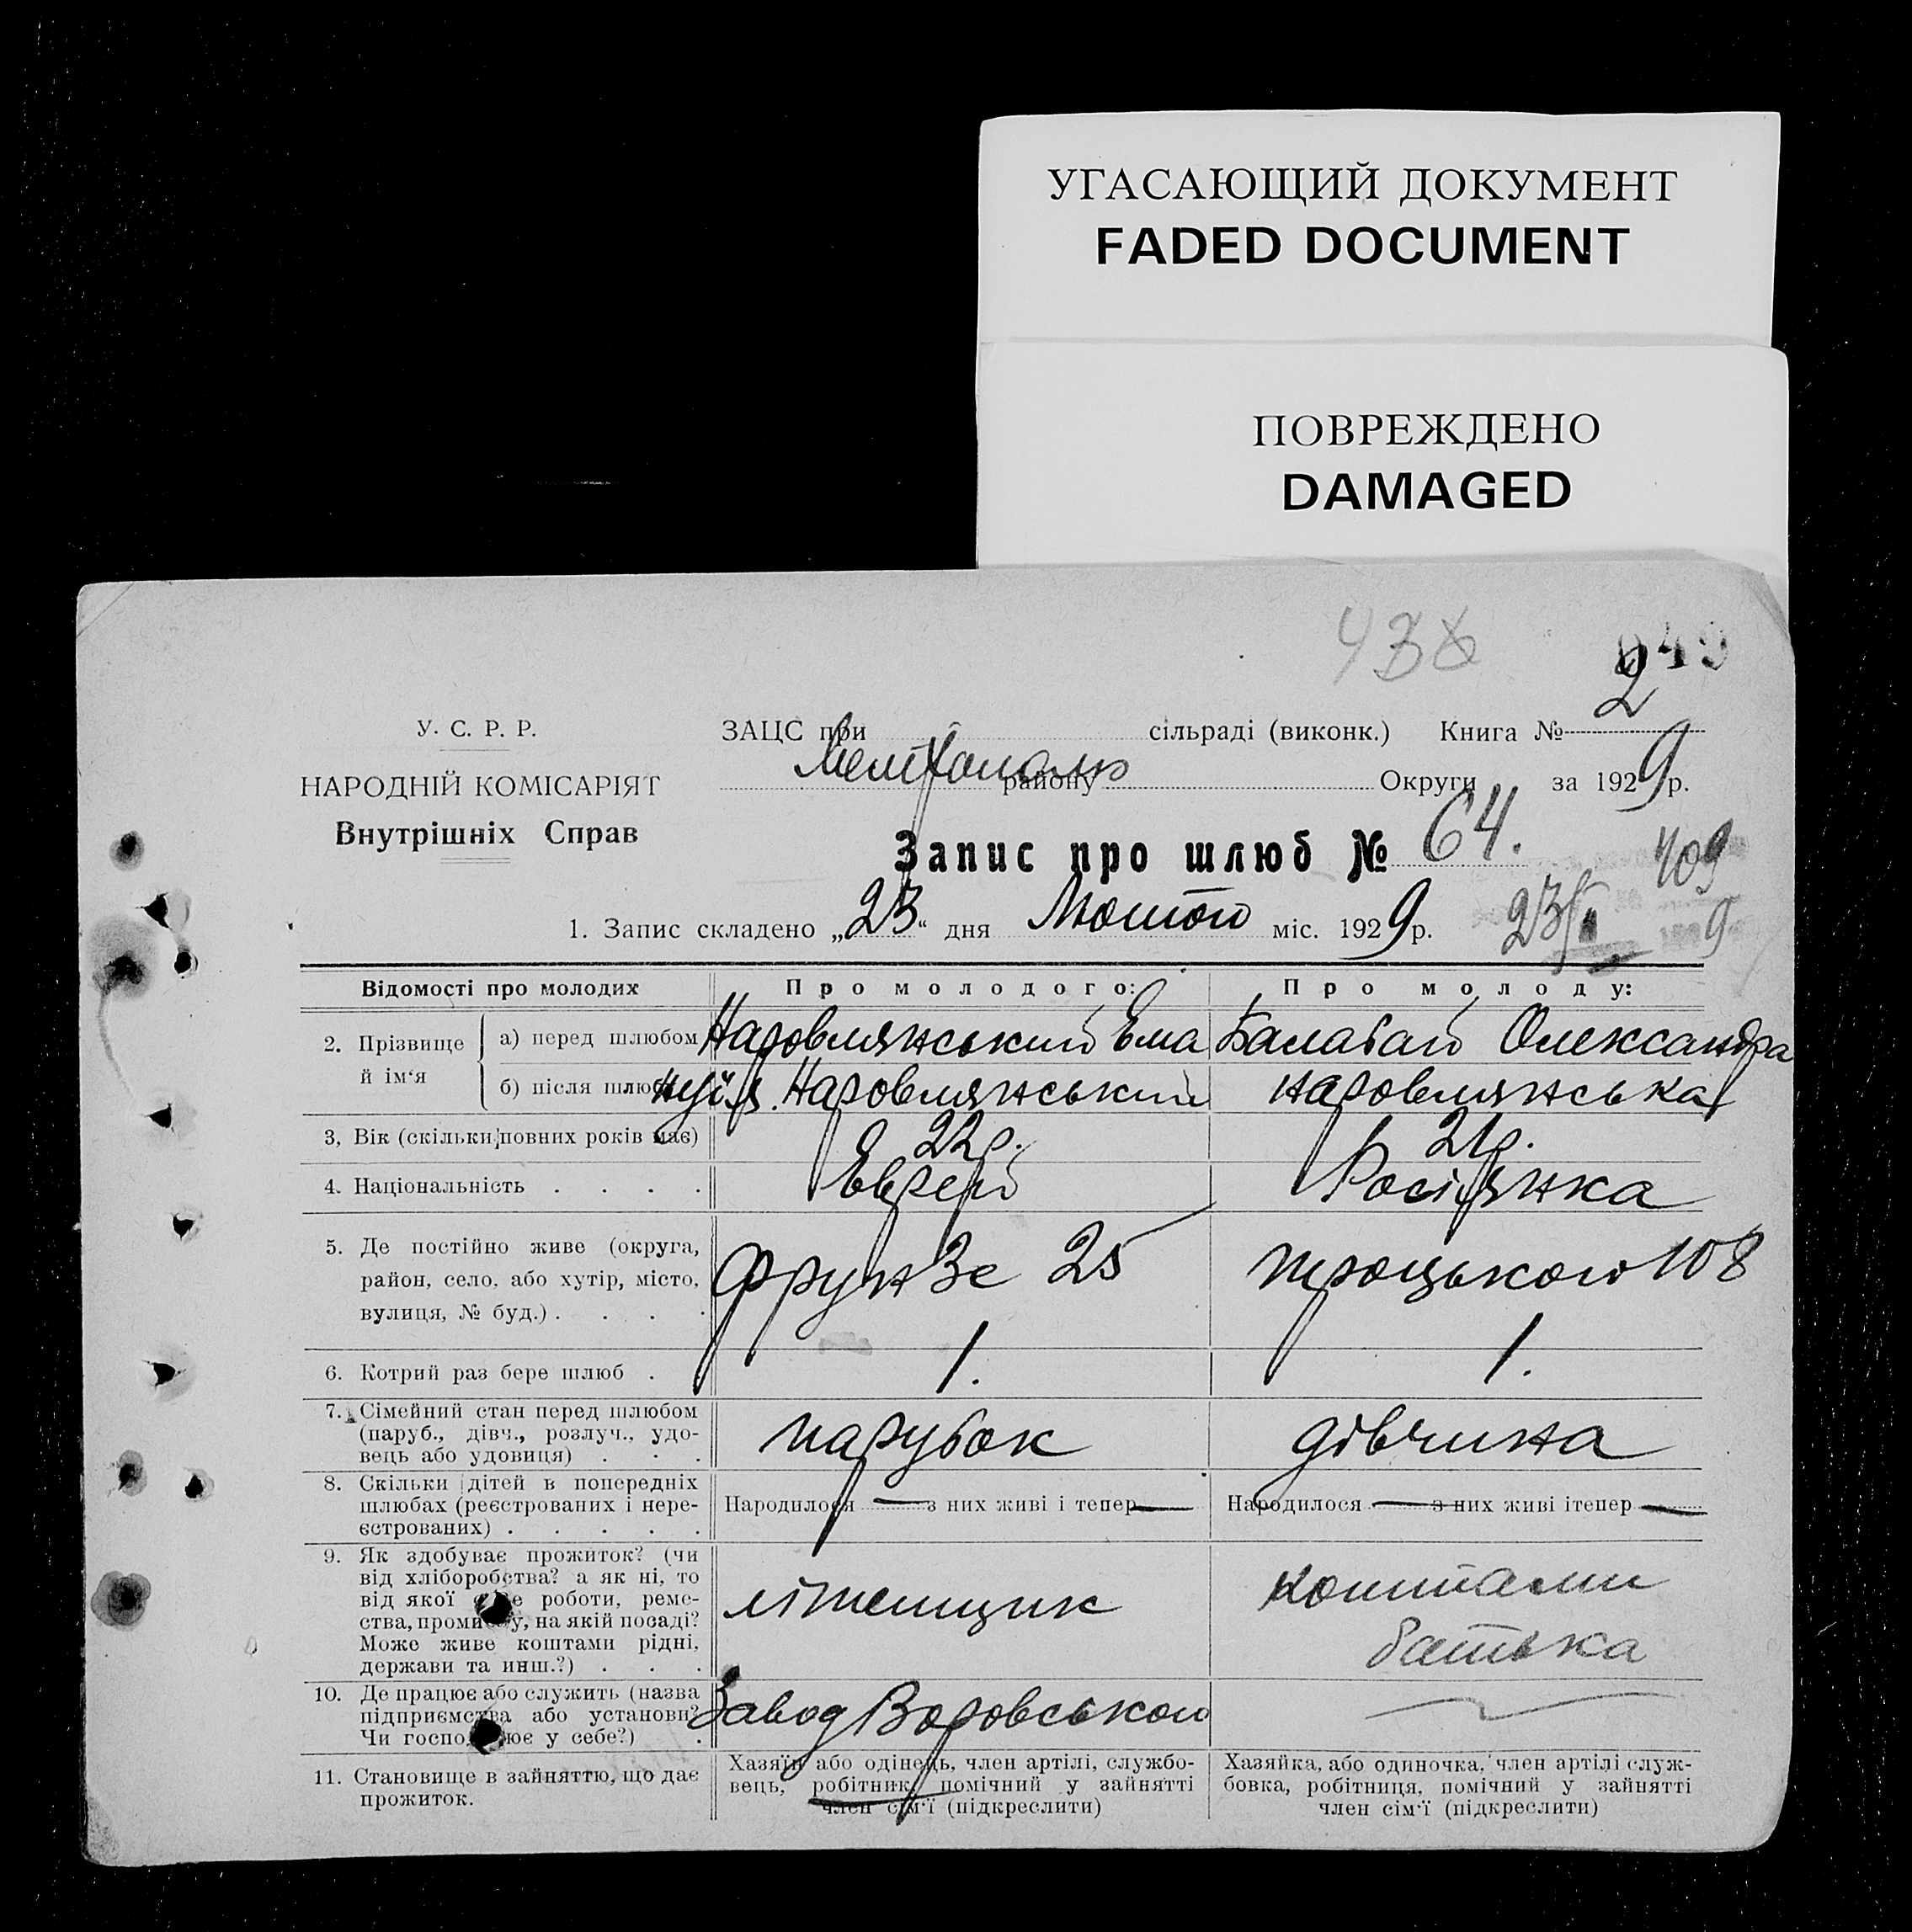 УГАСАЮЩИЙ ДОКУМЕНТ
FADED DOCUMENT
ПОВРЕЖДЕНО
DAMAGED
438
849
У. С. Р. Р.
НАРОДНІЙ КОМІСАРІЯТ
Внутрішніх Справ
ЗАЦС при сільраді (виконк.) Книга № 2
Мелітополь району Округи за 1929 р.
Запис про шлюб № 64.
409
1. Запис складено „23“ дня Лютого міс. 1929 р.
23/II 9
Відомості про молодих
Про молодого:
Про молоду:
2. Прізвище й ім‘я
а) перед шлюбом
Наровлянський Ема
нуїл
Балабай Олександра
б) після шлюбу
Наровлянський
Наровлянська
3, Вік (скільки повних років має)
22 р.
21 р.
4. Національність . . . .
Еврей
Росіянка
5. Де постійно живе (округа,
район, село, або хутір, місто,
вулиця, № буд.) . . . .
Фрунзе 25
Троцького 108
6. Котрий раз бере шлюб .
1.
1.
7. Сімейний стан перед шлюбом
(паруб., дівч., розлуч., удо-
вець або удовиця) . . .
парубок
дівчина
8. Скільки дітей в попередніх
шлюбах (реєстрованих і нере-
єстрованих) . . . . .
Народилося — з них живі і тепер —
Народилося — з них живі ітепер —
9. Як здобуває прожиток? (чи
від хліборобства? а як ні, то
від якої роботи, реме-
ства, промислу, на якій посаді?
Може живе коштами рідні,
держави та инш.?) . . .
літейщик
коштами
батька
10. Де працює або служить (назва
підприємства або установи?
Чи господарює у себе?) .
Завод Воровського
11. Становище в зайняттю, що дає
прожиток.
Хазяїн або одінець, член артілі, службо-
вець, робітник, помічний у зайнятті
член сім‘ї (підкреслити)
Хазяйка, або одиночка, член артілі служ-
бовка, робітниця, помічний у зайнятті
член сім‘ї (підкреслити)